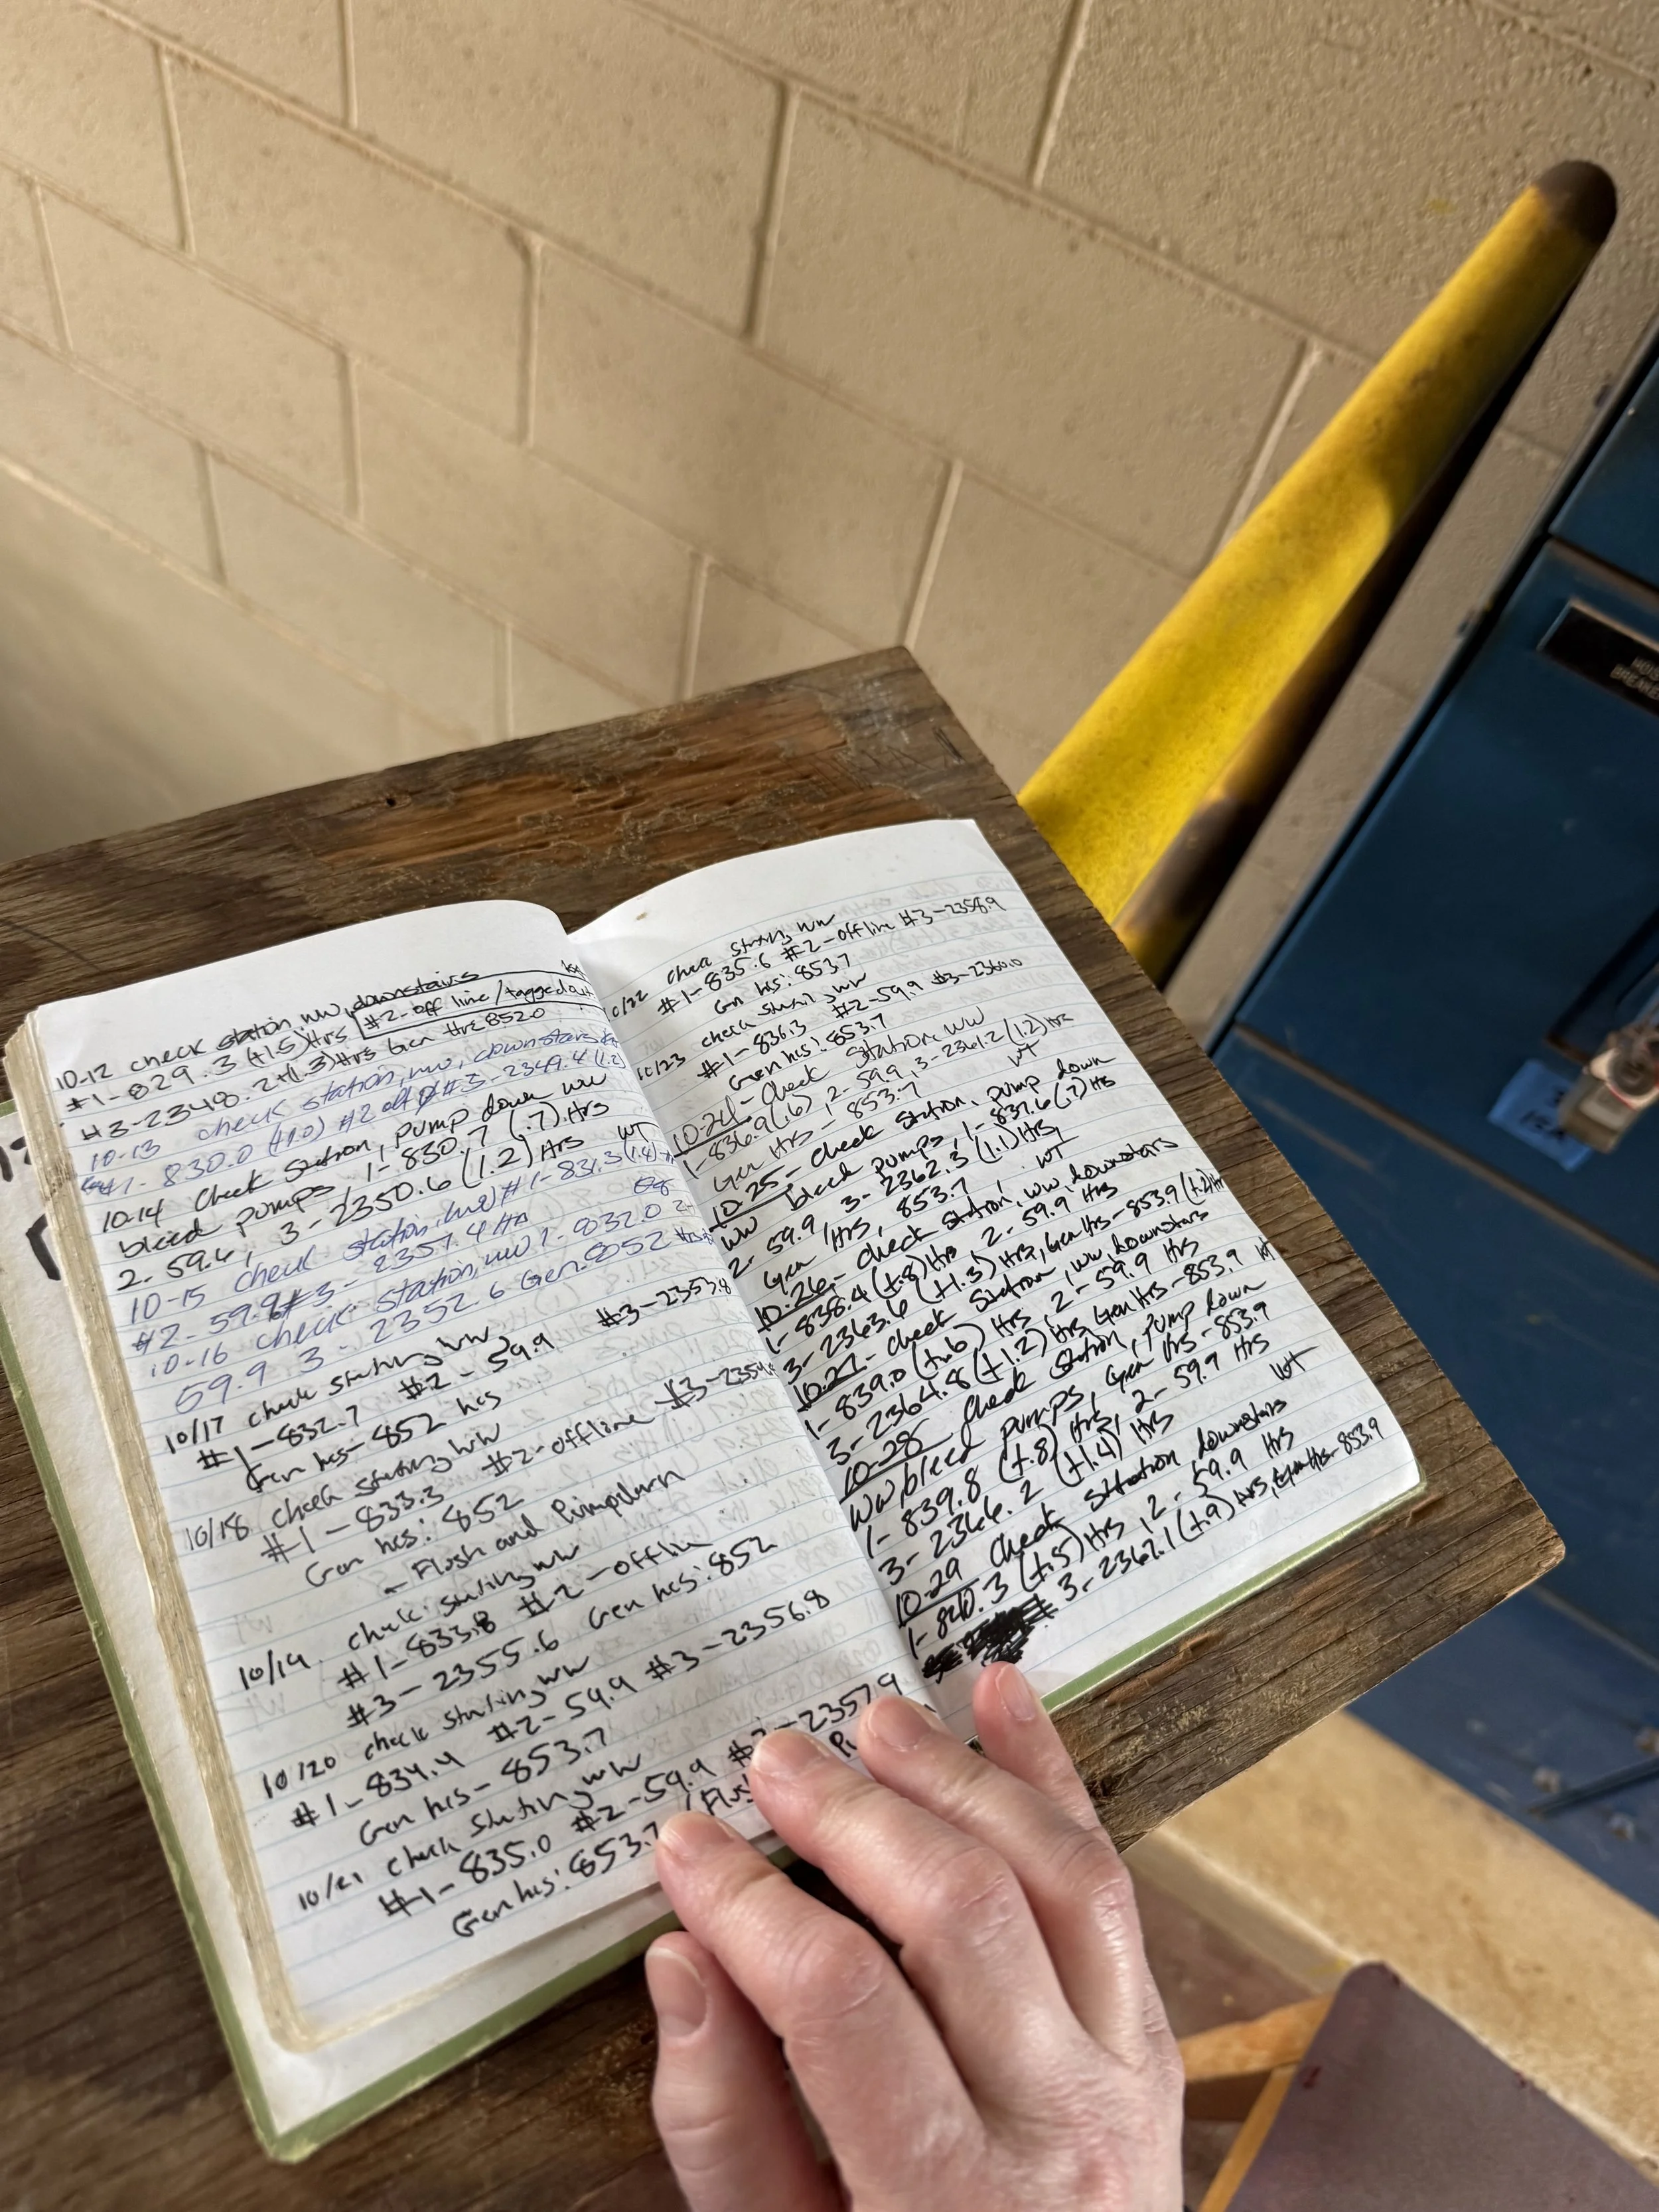 10-12 check station, ww, downstairs
#1-829.3 (+1.5) Hrs #2-off line/tagged out
#3-2348.2 +(1.3) Hrs Gen Hrs 8520
10-13 check station, ww, downstairs
#1- 830.0 (+1.0) #2 off #3-2349.4 (1.2)
10-14 check station, pump down ww
bleed pumps, 1-830.7 (.7) Hrs
2-59.6, 3-2350.6 (1.2) Hrs WT
10-15 check station, ww #1-831.3
#2-59.9 #3-2351.4 Hr
10-16 check station, ww 1-832.0 2-
59.9 3-2352.6 Gen. 8052
10/17 check station, ww
#1-832.7 #2-59.9 #3-2353.8
Gen hrs- 852 hrs
10/18 check station, ww
#1-833.3 #2-offline #3-2354
Gen hrs: 852
- Flush and Pumpdown
10/19 check station, ww
#1-833.8 #2-offlin
#3-2355.6 Gen hrs: 852
10/20 check station, ww
#1-834.4 #2-59.9 #3-2356.8
Gen hrs- 853.7
10/21 check station, ww
#1-835.0 #2-59.9 #3-2357.9
Gen hrs: 853.7
10/22 check station, ww
#1-835.6 #2-offline #3-2358.9
Gen hrs: 853.7
10/23 check station, ww
#1-836.3 #2-59.9 #3-2360.0
Gen hrs: 853.7
10-24- check station, ww
1-836.9 (.6), 2-59.9, 3-2361.2 (1.2) Hrs
Gen Hrs- 853.7 WT
10-25- check station, pump down
ww bleed pumps, 1-837.6 (.7) Hrs
2-59.9, 3-2362.3 (1.1) Hrs,
Gen Hrs, 853.7 WT
10-26- check station, ww, downstars
1-838.4 (+.8) Hrs 2-59.9 Hrs
3-2363.6 (+1.3) Hrs, Gen Hrs-853.9 (+.2) Hr
10-27- check station, ww, downstars
1-839.0 (+.6) Hrs, 2-59.9 Hrs
3-2364.8 (+1.2) Hrs Gen Hrs-853.9 WT
10-28 check station, pump down
ww, bleed pumps, Gen Hrs-853.9
1-839.8 (+.8) Hrs, 2-59.9 Hrs
3-2366.2 (+1.4) Hrs WT
10-29 check station downstars
1-840.3 (+.5) Hrs, 2-59.9 Hrs
3-2367.1 (+.9) Hrs, Gen Hrs-853.9